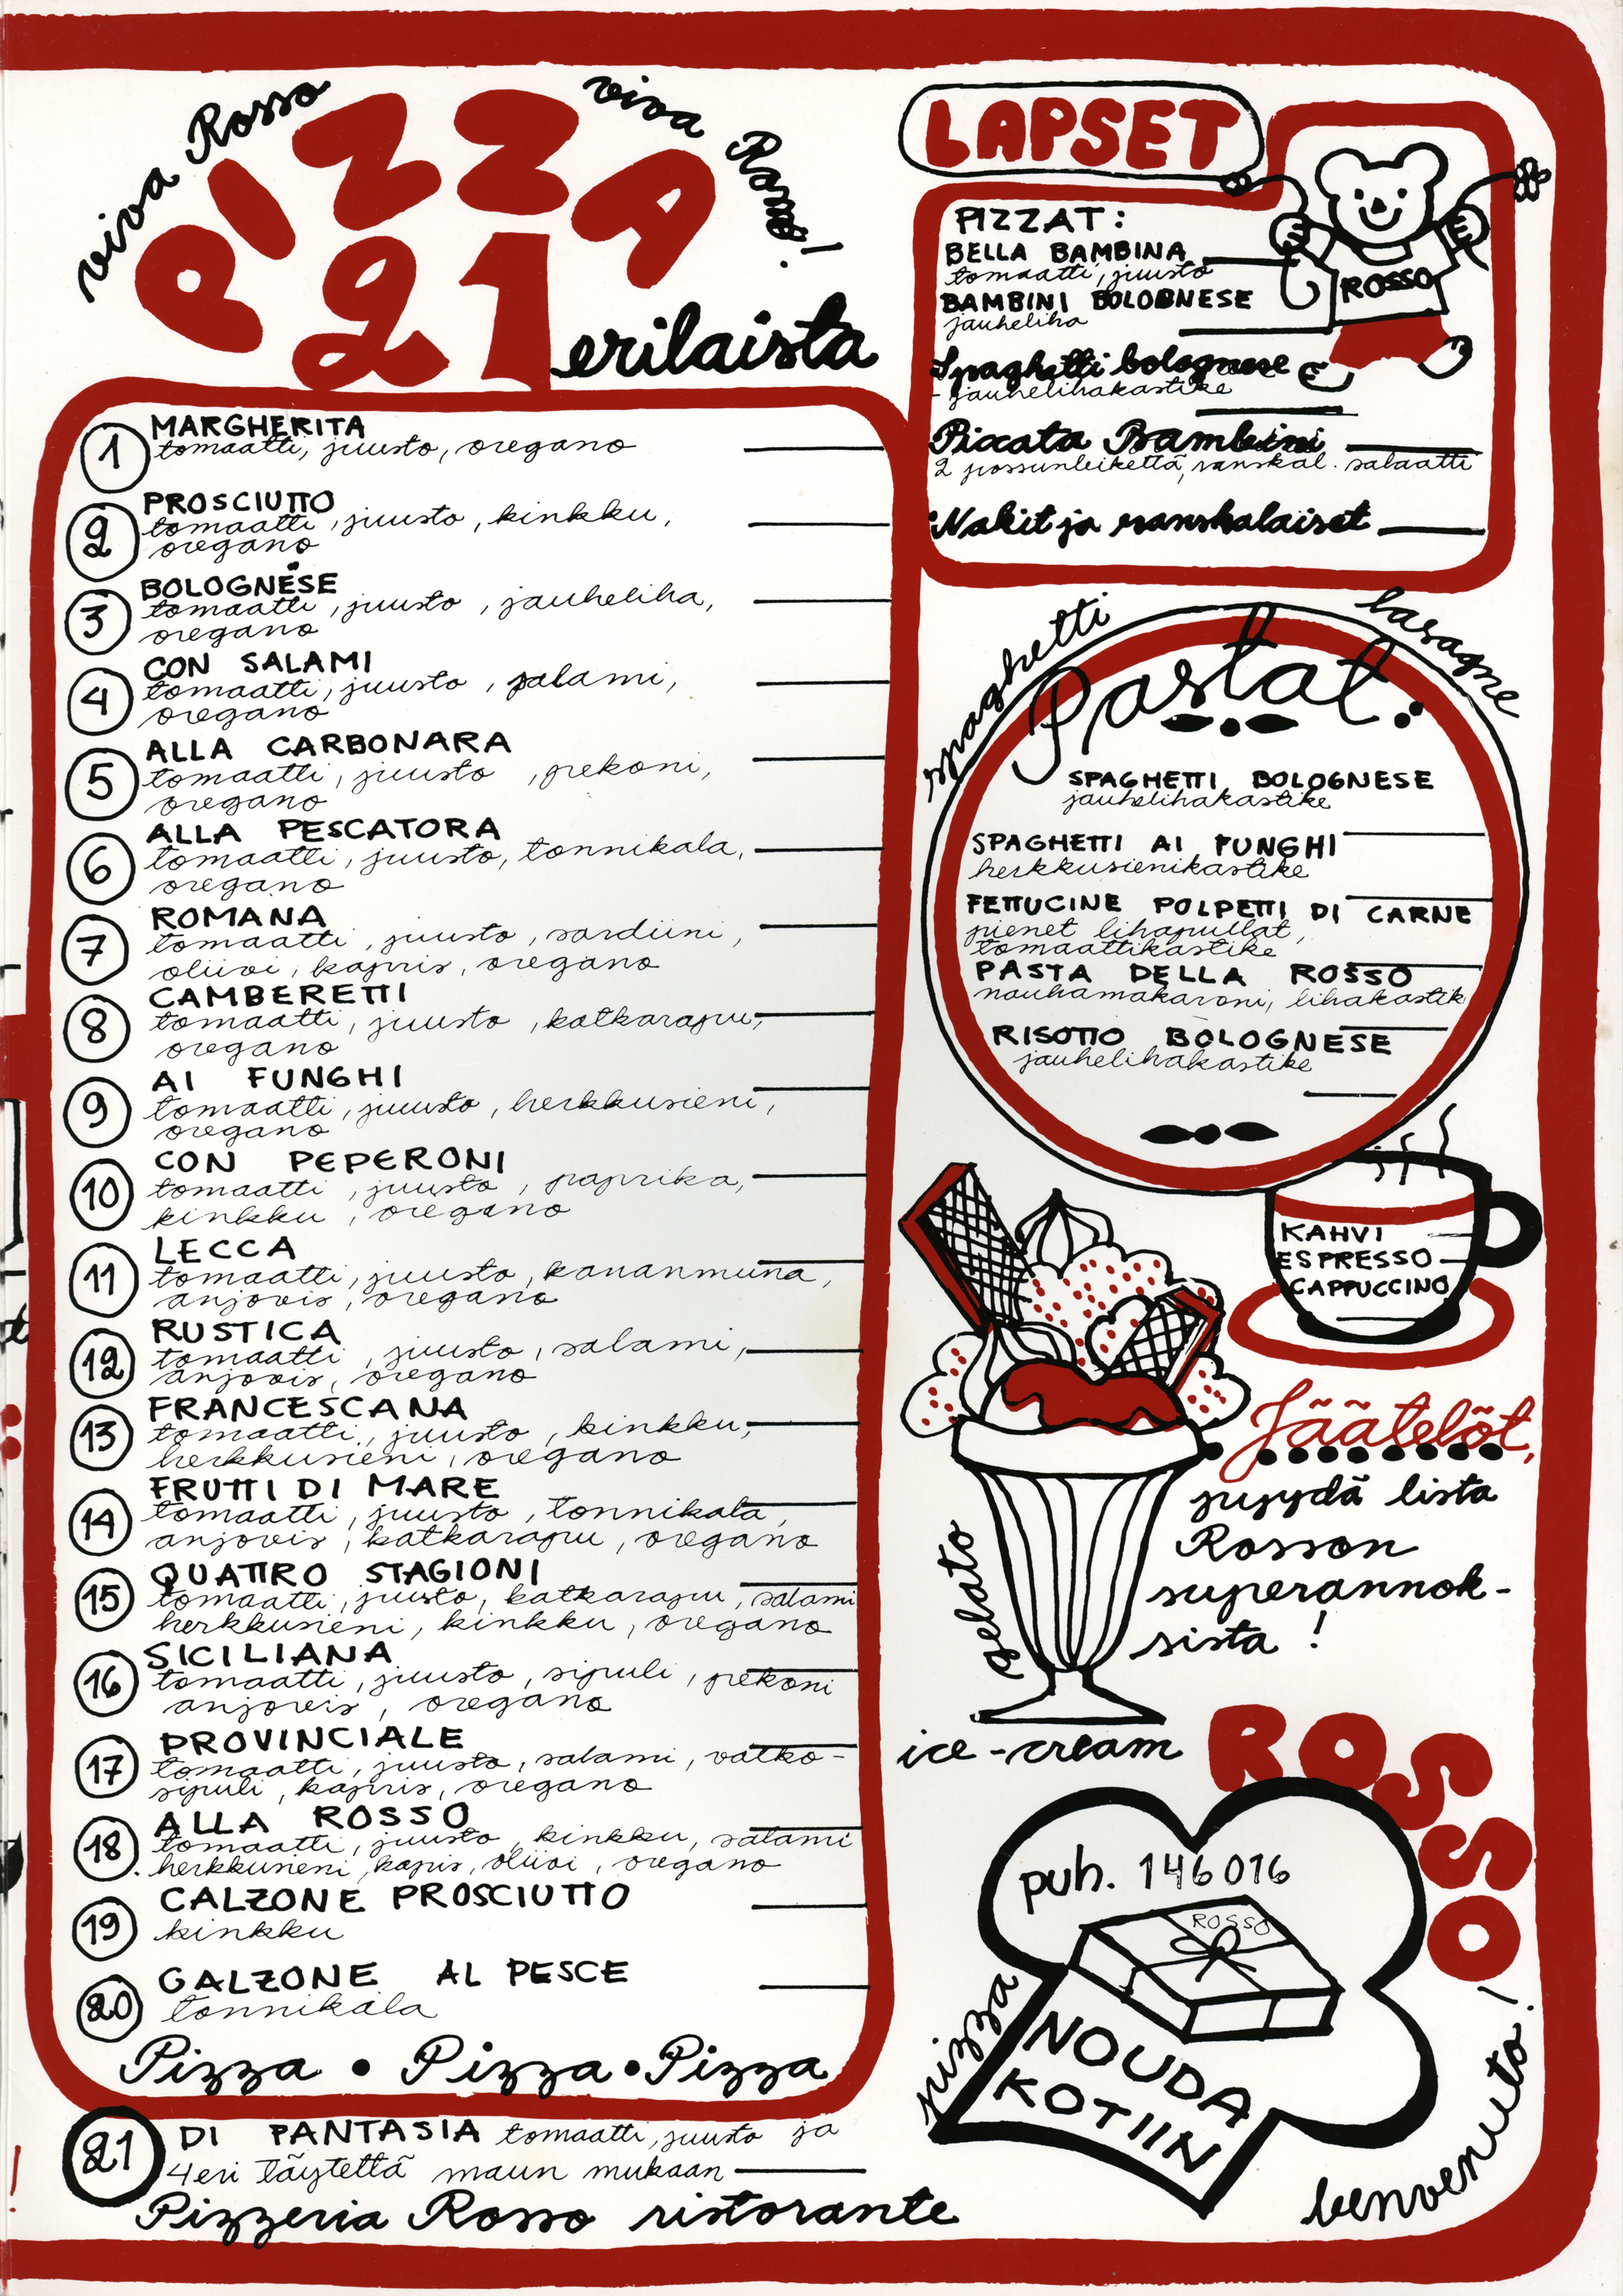 viva Rosso
viva Roma!
PIZZA
21 erilaista
1 MARGHERITA
tomaatti, juusto, oregano
2 PROSCIUTTO
tomaatti, juusto, kinkku,
oregano
3 BOLOGNESE
tomaatti, juusto, jauheliha,
oregano
4 CON SALAMI
tomaatti, juusto, salami,
oregano
5 ALLA CARBONARA
tomaatti, juusto, pekoni,
oregano
6 ALLA PESCATORA
tomaatti, juusto, tonnikala,
oregano
7 ROMANA
tomaatti, juusto, sardiini,
oliivi, kapris, oregano
8 CAMBERETTI
tomaatti, juusto, katkarapu,
oregano
9 AI FUNGHI
tomaatti, juusto, herkkusieni,
oregano
10 CON PEPERONI
tomaatti, juusto, paprika,
kinkku, oregano
11 LECCA
tomaatti, juusto, kananmuna,
anjovis, oregano
12 RUSTICA
tomaatti, juusto, salami,
anjovis, oregano
13 FRANCESCANA
tomaatti, juusto, kinkku,
herkkusieni, oregano
14 FRUTTI DI MARE
tomaatti, juusto, tonnikala,
anjovis, katkarapu, oregano
15 QUATTRO STAGIONI
tomaatti, juusto, katkarapu, salami
herkkusieni, kinkku, oregano
16 SICILIANA
tomaatti, juusto, sipuli, pekoni
anjovis, oregano
17 PROVINCIALE
tomaatti, juusto, salami, valko-
sipuli, kapris, oregano
18. ALLA ROSSO
tomaatti, juusto, kinkku, salami
herkkusieni, kapis, oliivi, oregano
19 CALZONE PROSCIUTTO
kinkku
20 CALZONE AL PESCE
tonnikala
Pizza • Pizza • Pizza
21 DI FANTASIA tomaatti, juusto ja
4 eri täytettä maun mukaan
Pizzeria Rosso ristorante
LAPSET
ROSSO
PIZZAT:
BELLA BAMBINA
tomaatti, juusto
BAMBINI BOLOGNESE
jauheliha
Spaghetti bolognese
- jauhelihakastike
Piccata Bambini
2 possunleikettä, ranskal. salaatti
Nakit ja ranskalaiset
spaghetti
lasagne
Pastat:
SPAGHETTI BOLOGNESE
jauhelihakastike
SPAGHETTI AI FUNGHI
herkkusienikastike
FETTUCINE POLPETTI DI CARNE
pienet lihapullat,
tomaattikastike
PASTA DELLA ROSSO
nauhamakaroni, lihakastik
RISOTTO BOLOGNESE
jauhelihakastike
KAHVI
ESPRESSO
CAPPUCCINO
Jäätelöt,
pyydä lista
Rosson
superannok-
sista !
gelato
ice-cream
ROSSO
puh. 146016
ROSSO
NOUDA
KOTIIN
pizza
benvenuto!